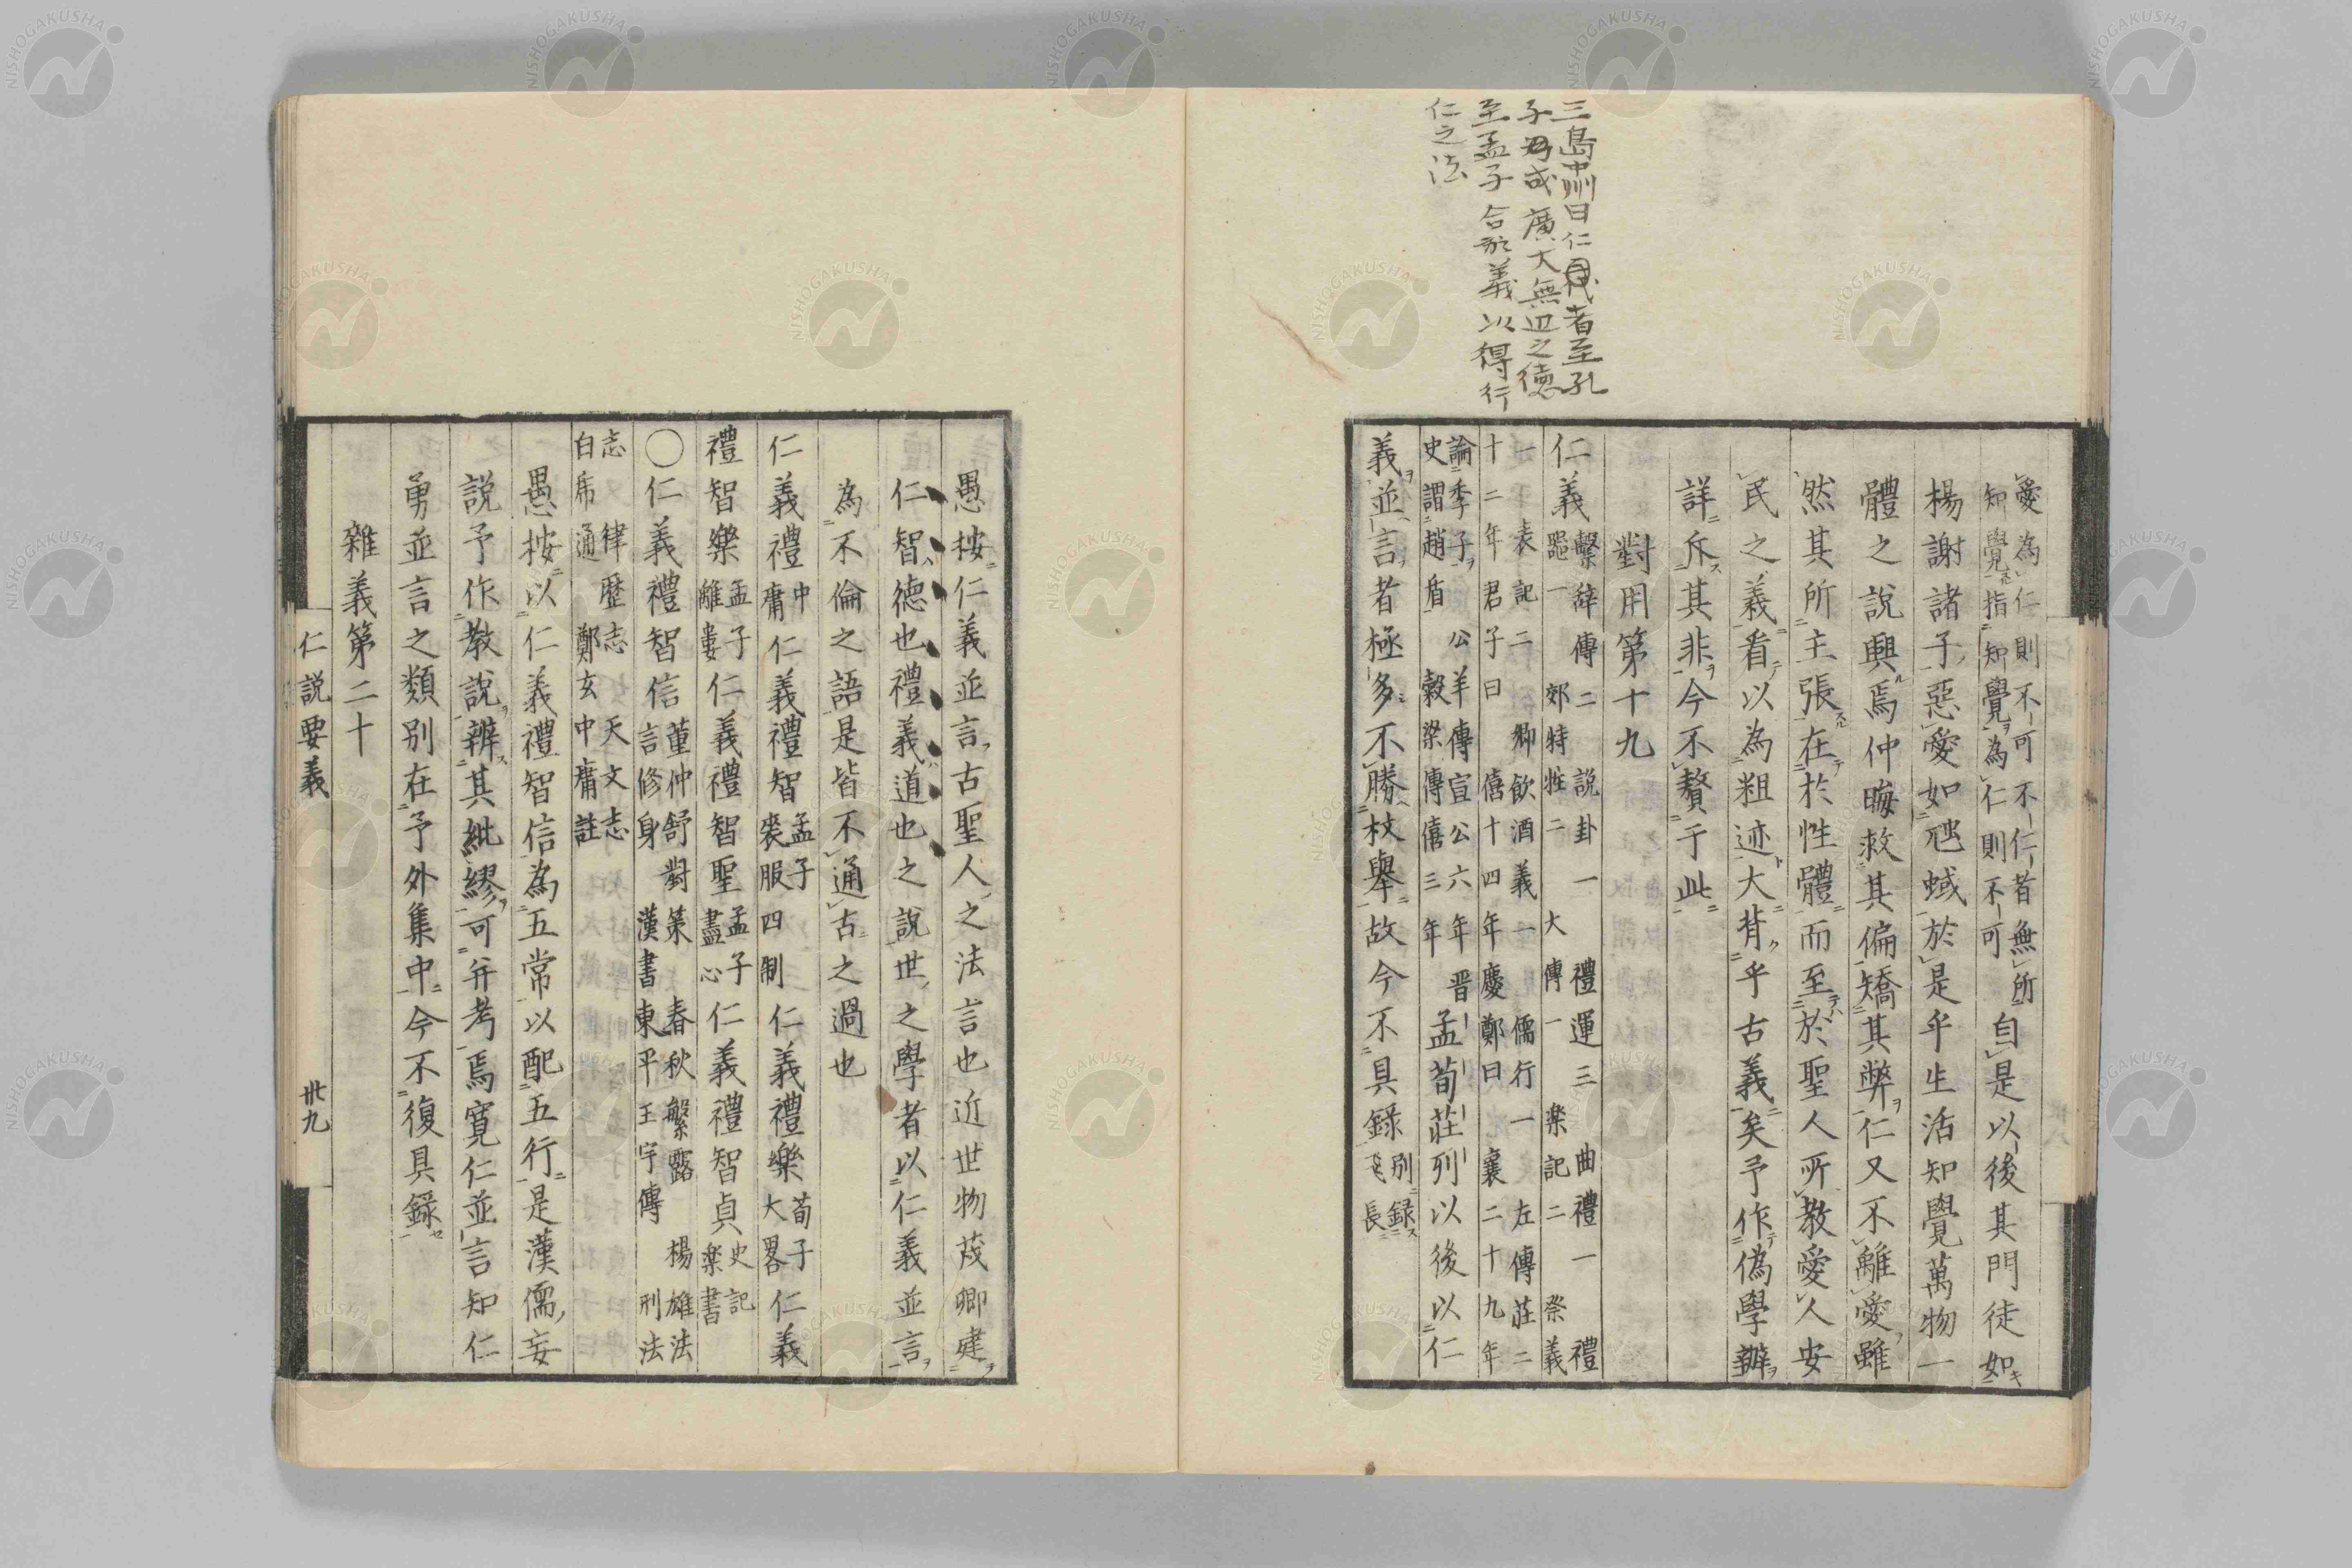 三島中洲曰仁目我者至孔
子為成廣大無辺之德
至孟子合於義以得行
仁之法
愛為仁則不可不仁者無所
知覺指知覺為仁則不可
自是以後其門徒如
楊謝諸子惡愛如虺蜮於是乎生活知覺萬物一
體之說興焉仲晦救其偏矯其弊仁又不離愛雖
然其所主張在於性體而至於聖人所教愛人安
民之義看以為粗迹大背乎古義矣予作偽學辨
詳斥其非今不贅于此
對用第十九
仁義
繫辭傳二 說卦一 禮運三 曲禮一 禮
噐一 郊特牲二 大傳一 楽記二 祭義
一 表記二 鄉飲酒義一 儒行一 左傳莊二
十二年君子曰 僖十四年慶鄭曰 襄二十九年
論季子 公羊傳宣公六年晋
史謂趙盾 穀梁傳僖三年
孟荀莊列以後以仁
義並言者極多不勝枚舉故今不具録
別録
長
愚按仁義並言古聖人之法言也近世物茂卿建
仁智德也禮義道也之說世之學者以仁義並言
為不倫之語是皆不通古之過也
仁義禮中庸仁義禮智孟子喪服四制仁義禮樂荀子大畧仁義
禮智樂孟子離婁仁義禮智聖孟子盡心仁義禮智貞史記楽書
〇仁義禮智信董仲舒對策 春秋繁露 楊雄法
言修身 漢書東平王宇傳 刑法
志 律歷志 天文志
白虎通 鄭玄中庸註
愚按以仁義禮智信為五常以配五行是漢儒妄
說予作教說辨其紕繆可并考焉寬仁並言知仁
勇並言之類別在予外集中今不復具録
雜義第二十
仁說要義
卅九
NISHOGAKUSHA